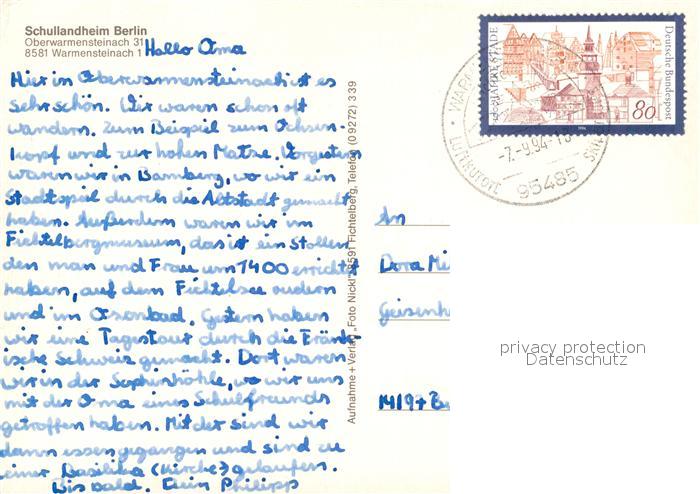 Schullandheim Berlin
Oberwarmensteinach 31
8581 Warmensteinach 1
Hallo Oma
Hier in Oberwarmensteinach ist es
sehr schön. Wir waren schon oft
wandern. Zum Beispiel zum Ochsen-
kopf und zur hohen Matze. Vorgestern
waren wir in Bamberg, wo wir ein
Stadtspiel durch die Altstadt gemacht
haben. Außerdem waren wir im
Fichtelbergmuseum, das ist ein Stollen
den man und Frau um 1400 errichtet
haben, auf dem Fichtelsee rudern
und im Ozonbad. Gestern haben
wir eine Tagestour durch die Fränk-
ische Schweiz gemacht. Dort waren
wir in der Sophinhöhle, wo wir uns
mit der Oma eines Schulfreunds
getroffen haben. Mit der sind wir
dann essen gegangen und sind zu
einer Basilika (Kirche) gelaufen.
Bis bald. Dein Philipp
Aufnahme + Verlag „Foto Nickl" 8591 Fichtelberg, Telefon (09272) 339
JAHRE STADE
Deutsche Bundespost
80
1994
-7.-9.94-18
LUFTKURORT
95485
An
Dora Mi
Geisenh
1419+ Be
privacy protection
Datenschutz